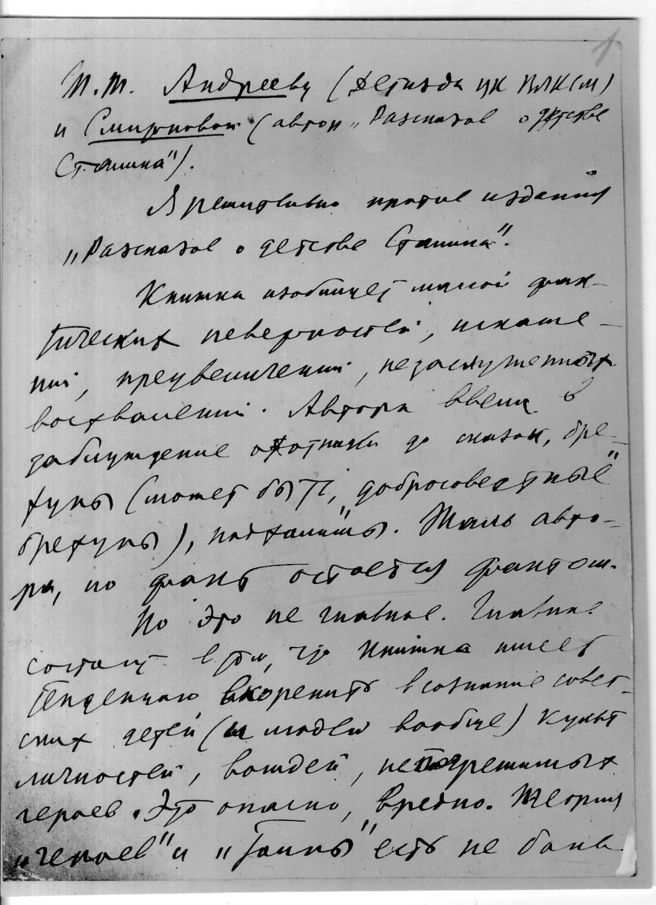 1
Т.т. Андрееву (Детиздат ЦК ВЛКСМ)
и Смирновой (автору „Рассказов о детстве
Сталина").
Я решительно против издания
„Рассказов о детстве Сталина".
Книжка изобилует массой фак-
тических неверностей, искаже-
ний, преувеличений, незаслуженных
восхвалений. Автора ввели в
заблуждение охотники до сказок, бре-
хуны (может быть, „добросовестные"
брехуны), подхалимы. Жаль авто-
ра, но факт остается фактом.
Но это не главное. Главное
состоит в том, что книжка имеет
тенденцию вкоренить в сознание совет-
ских детей (и людей вообще) культ
личностей, вождей, непогрешимых
героев. Это опасно, вредно. Теория
„героев" и „толпы" есть не боль-